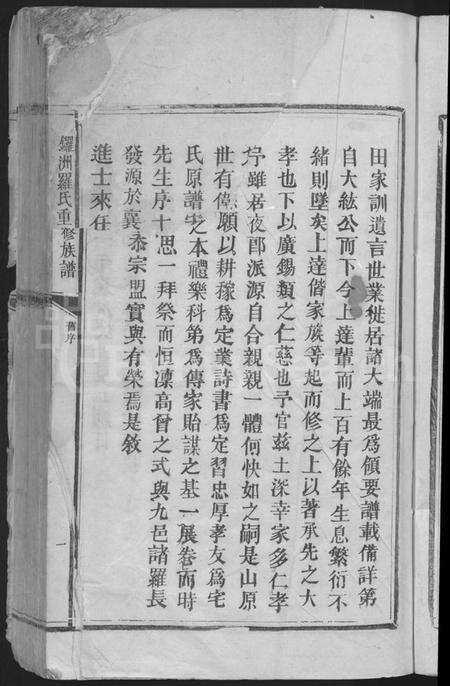 田家訓遺言世業徙居諸大端最爲領要譜載備詳第
自大紘公而下今上達輩而上百有餘年生息繁衍不
緒則墜矣上達偕家族等起而修之上以著承先之大
孝也下以廣錫類之仁慈也予官茲土深幸家多仁孝
雖居夜郎派源自合親親一體何快如之嗣是山原
世有偉願以耕稼爲定業詩書爲定習忠厚孝友爲宅
氏原譜之本禮樂科第爲傳家貽謀之基一展卷而時
先生序十思一拜祭而恒凜高曾之式與九邑諸羅長
發源於襄忝宗盟實與有榮焉是敘
進士來任
鑼洲羅氏重修族譜
舊序
一